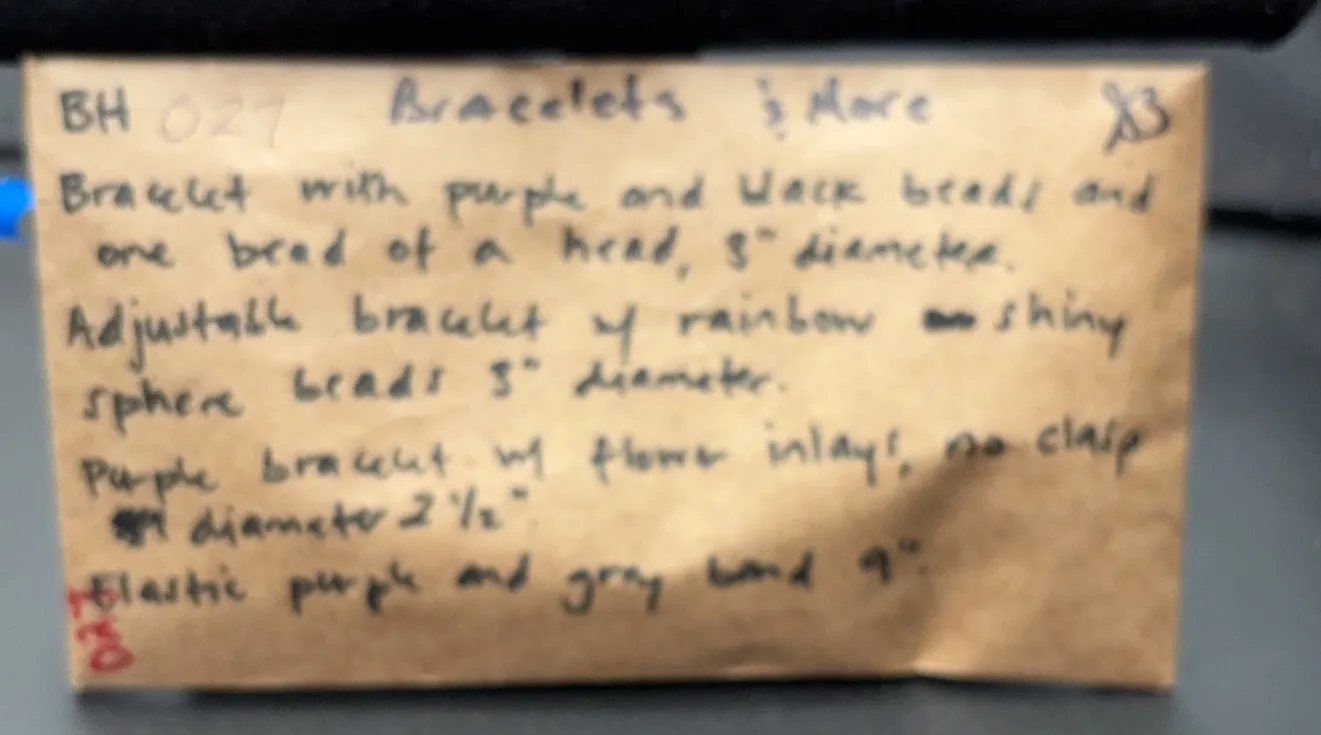 BH 027 Bracelets & More $3
Bracelet with purple and black beads and
one bead of a head, 3" diameter.
Adjustable bracelet w/ rainbow shiny
sphere beads 3" diameter.
Purple bracelet w/ flower inlays, no clasp
diameter 2 1/2".
Elastic purple and gray band 9".